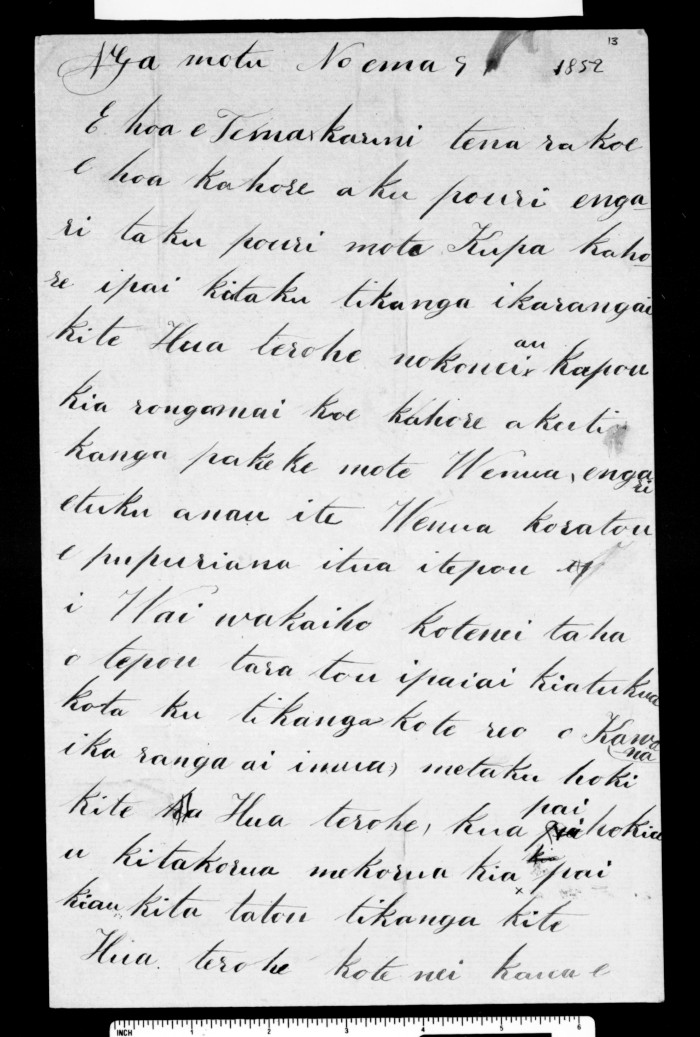 13
Nga motu Noema 9 1852
E hoa e Temakarini tena ra koe
e hoa kahore aku pouri enga
ri taku pouri mote Kupa kaho
re ipai kitaku tikanga ikarangai
kite Hua terohe nokonei au kapou
kia rongomai koe kahore akuti
kanga pakeke mote Wenua, engari
etuku anau ite Wenua koratou
e pupuriana itua itepou
i Wai wakaiho kotenei taha
o tepou tara tou ipaiai kiatukua
kota ku tikanga kote reo o Kawana
ika ranga ai imua, metaku hoki
kite Hua terohe, kua pai hokia
u kitakorua mekorua kia pai
kiau kita tatou tikanga kite
Hua terohe kote nei kaua e
INCH 1 2 3 4 5 6